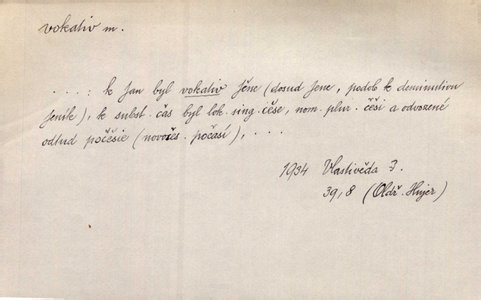 vokativ m.
. . . . : k Jan byl vokativ Jěne (dosud Jene, podob. k deminutivu
Jeník), k subst. čas byl lok. sing. čěse, nom. plur. čěsi a odvozené
odtud počěsie (novočes. počasí), . . .
1934 Vlastivěda 3.
39,8 (Oldř. Hujer)